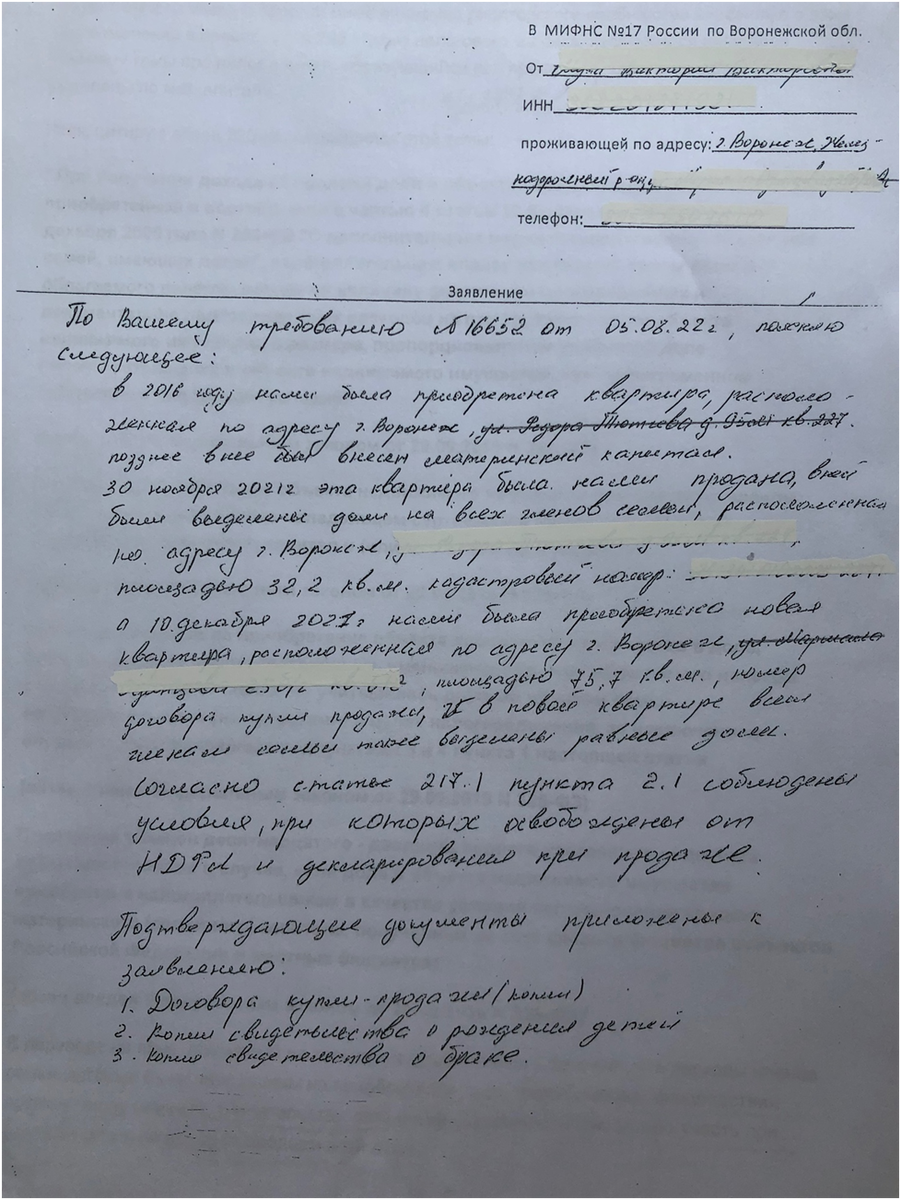 В МИФНС №17 России по Воронежской обл.
От
ИНН
проживающей по адресу: г. Воронеж, Желез-
нодорожный р-он,
телефон:
Заявление
По Вашему требованию №16652 от 05.08.22г, поясняю
следующее:
в 2016 году нами была приобретена квартира, располо-
женная по адресу г. Воронеж,
позднее в нее был внесен материнский капитал.
30 ноября 2021г эта квартира была нами продана, в ней
были выделены доли на всех членов семьи, расположенная
по адресу г. Воронеж,
площадью 32,2 кв.м. кадастровый номер:
а 10 декабря 2021г нами была приобретена новая
квартира, расположенная по адресу г. Воронеж,
, площадью 75,7 кв.м., номер
договора купли продажи, в новой квартире всем
членам семьи также выделены равные доли.
Согласно статье 217.1 пункта 2.1 соблюдены
условия, при которых освобождены от
НДФЛ и декларирования при продаже.
Подтверждающие документы приложены к
заявлению:
1. Договора купли-продажи (копии)
2. Копии свидетельства о рождения детей
3. Копия свидетельства о браке.